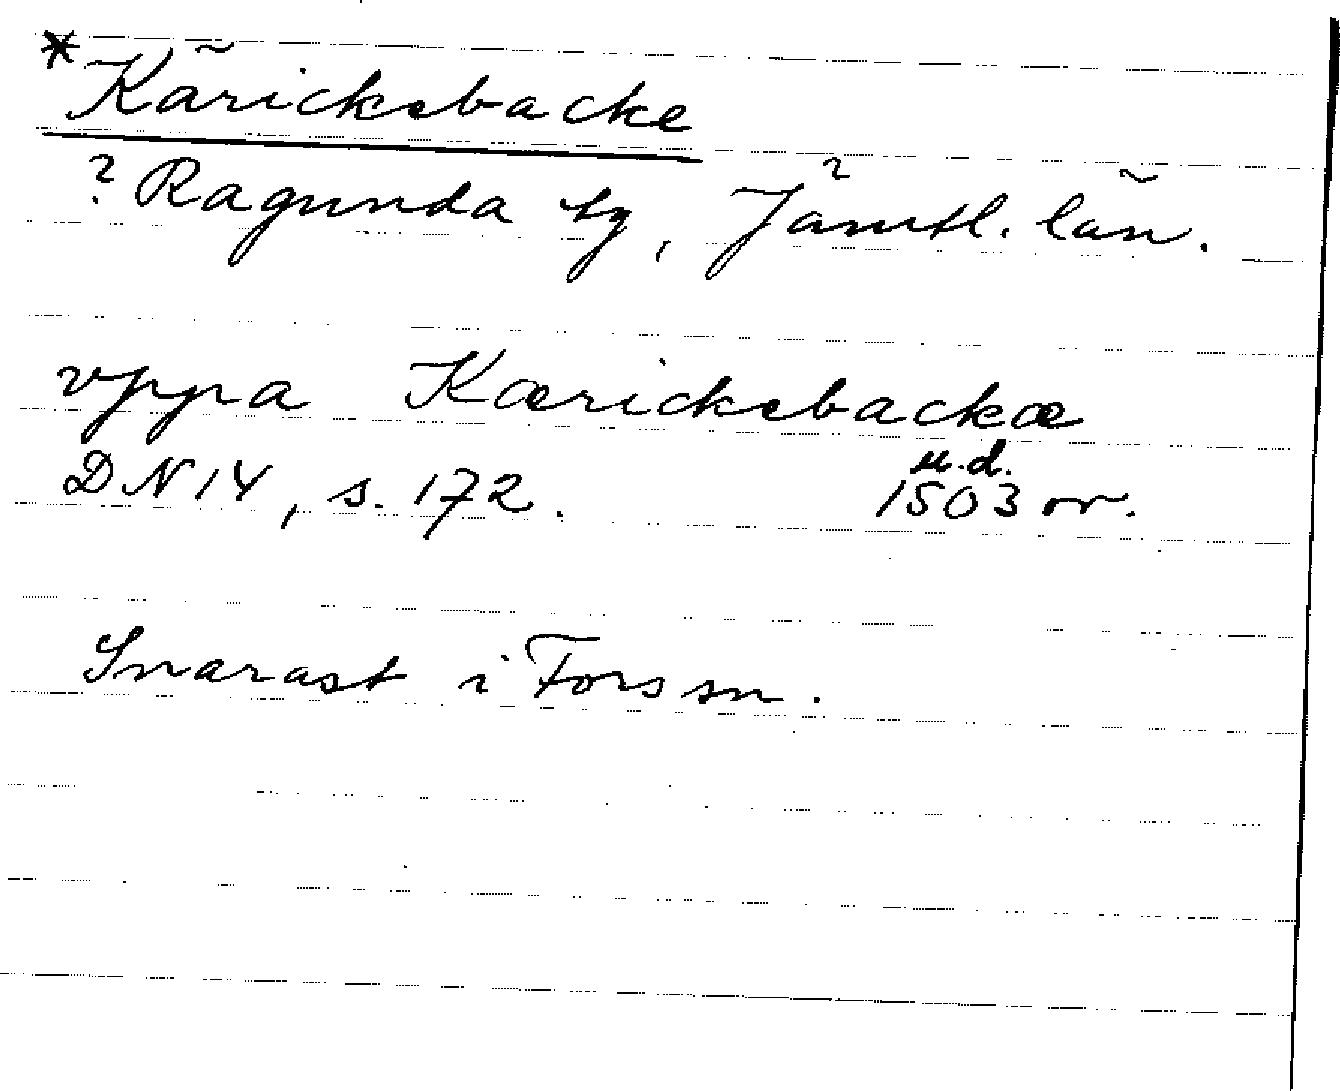 *Käricksbacke
? Ragunda tg, Jämtl. län.
vppa Kæricksbackæ
u.d.
DN 14, s. 172. 1503 or.
Snarast i Fors sn.